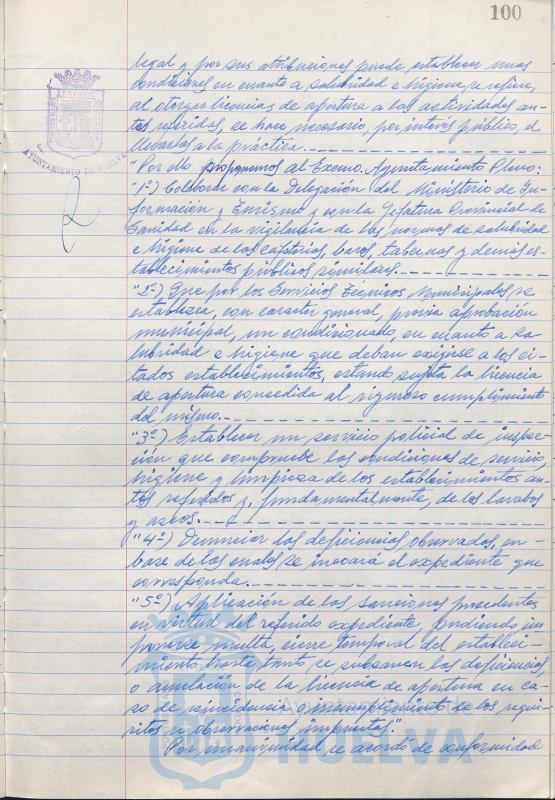 100
legal y por sus atribuciones puede establecer unas
condiciones en cuanto a salubridad e higiene se refiere,
al otorgar licencias de apertura a las actividades an-
tes referidas, se hace necesario, por interés público, el
llevarlos a la práctica.
AYUNTAMIENTO DE HUELVA
"Por ello proponemos al Excmo. Ayuntamiento Pleno:
"1º) Colaborar con la Delegación del Ministerio de In-
formación y Turismo y con la Jefatura Provincial de
Sanidad en la vigilancia de las normas de salubridad
e higiene de las cafeterías, bares, tabernas y demás es-
tablecimientos públicos similares.
"2º) Que por los Servicios Técnicos Municipales se
establezca, con carácter general, previa aprobación
municipal, un condicionado, en cuanto a sa-
lubridad e higiene que deban exigirse a los ci-
tados establecimientos, estando sujeta la licencia
de apertura concedida al riguroso cumplimiento
del mismo.
"3º) Establecer un servicio policial de inspec-
ción que compruebe las condiciones de servicio,
higiene y limpieza de los establecimientos an-
tes referidos y, fundamentalmente, de los lavabos
y aseos.
"4º) Denunciar las deficiencias observadas, en
base de las cuales se incoará el expediente que
corresponda.
"5º) Aplicación de las sanciones procedentes
en virtud del referido expediente, pudiendo im-
ponerse multa, cierre temporal del estableci-
miento, hasta tanto se subsanen las deficiencias,
o anulación de la licencia de apertura en ca-
so de reincidencia o incumplimiento de los requi-
sitos u observaciones impuestas".
Por unanimidad se acordó de conformidad
HUELVA